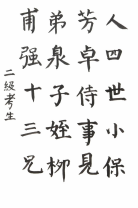 人四世小保
芳卓侍事見
弟泉子姪柳
甫强十三兄
二級考生